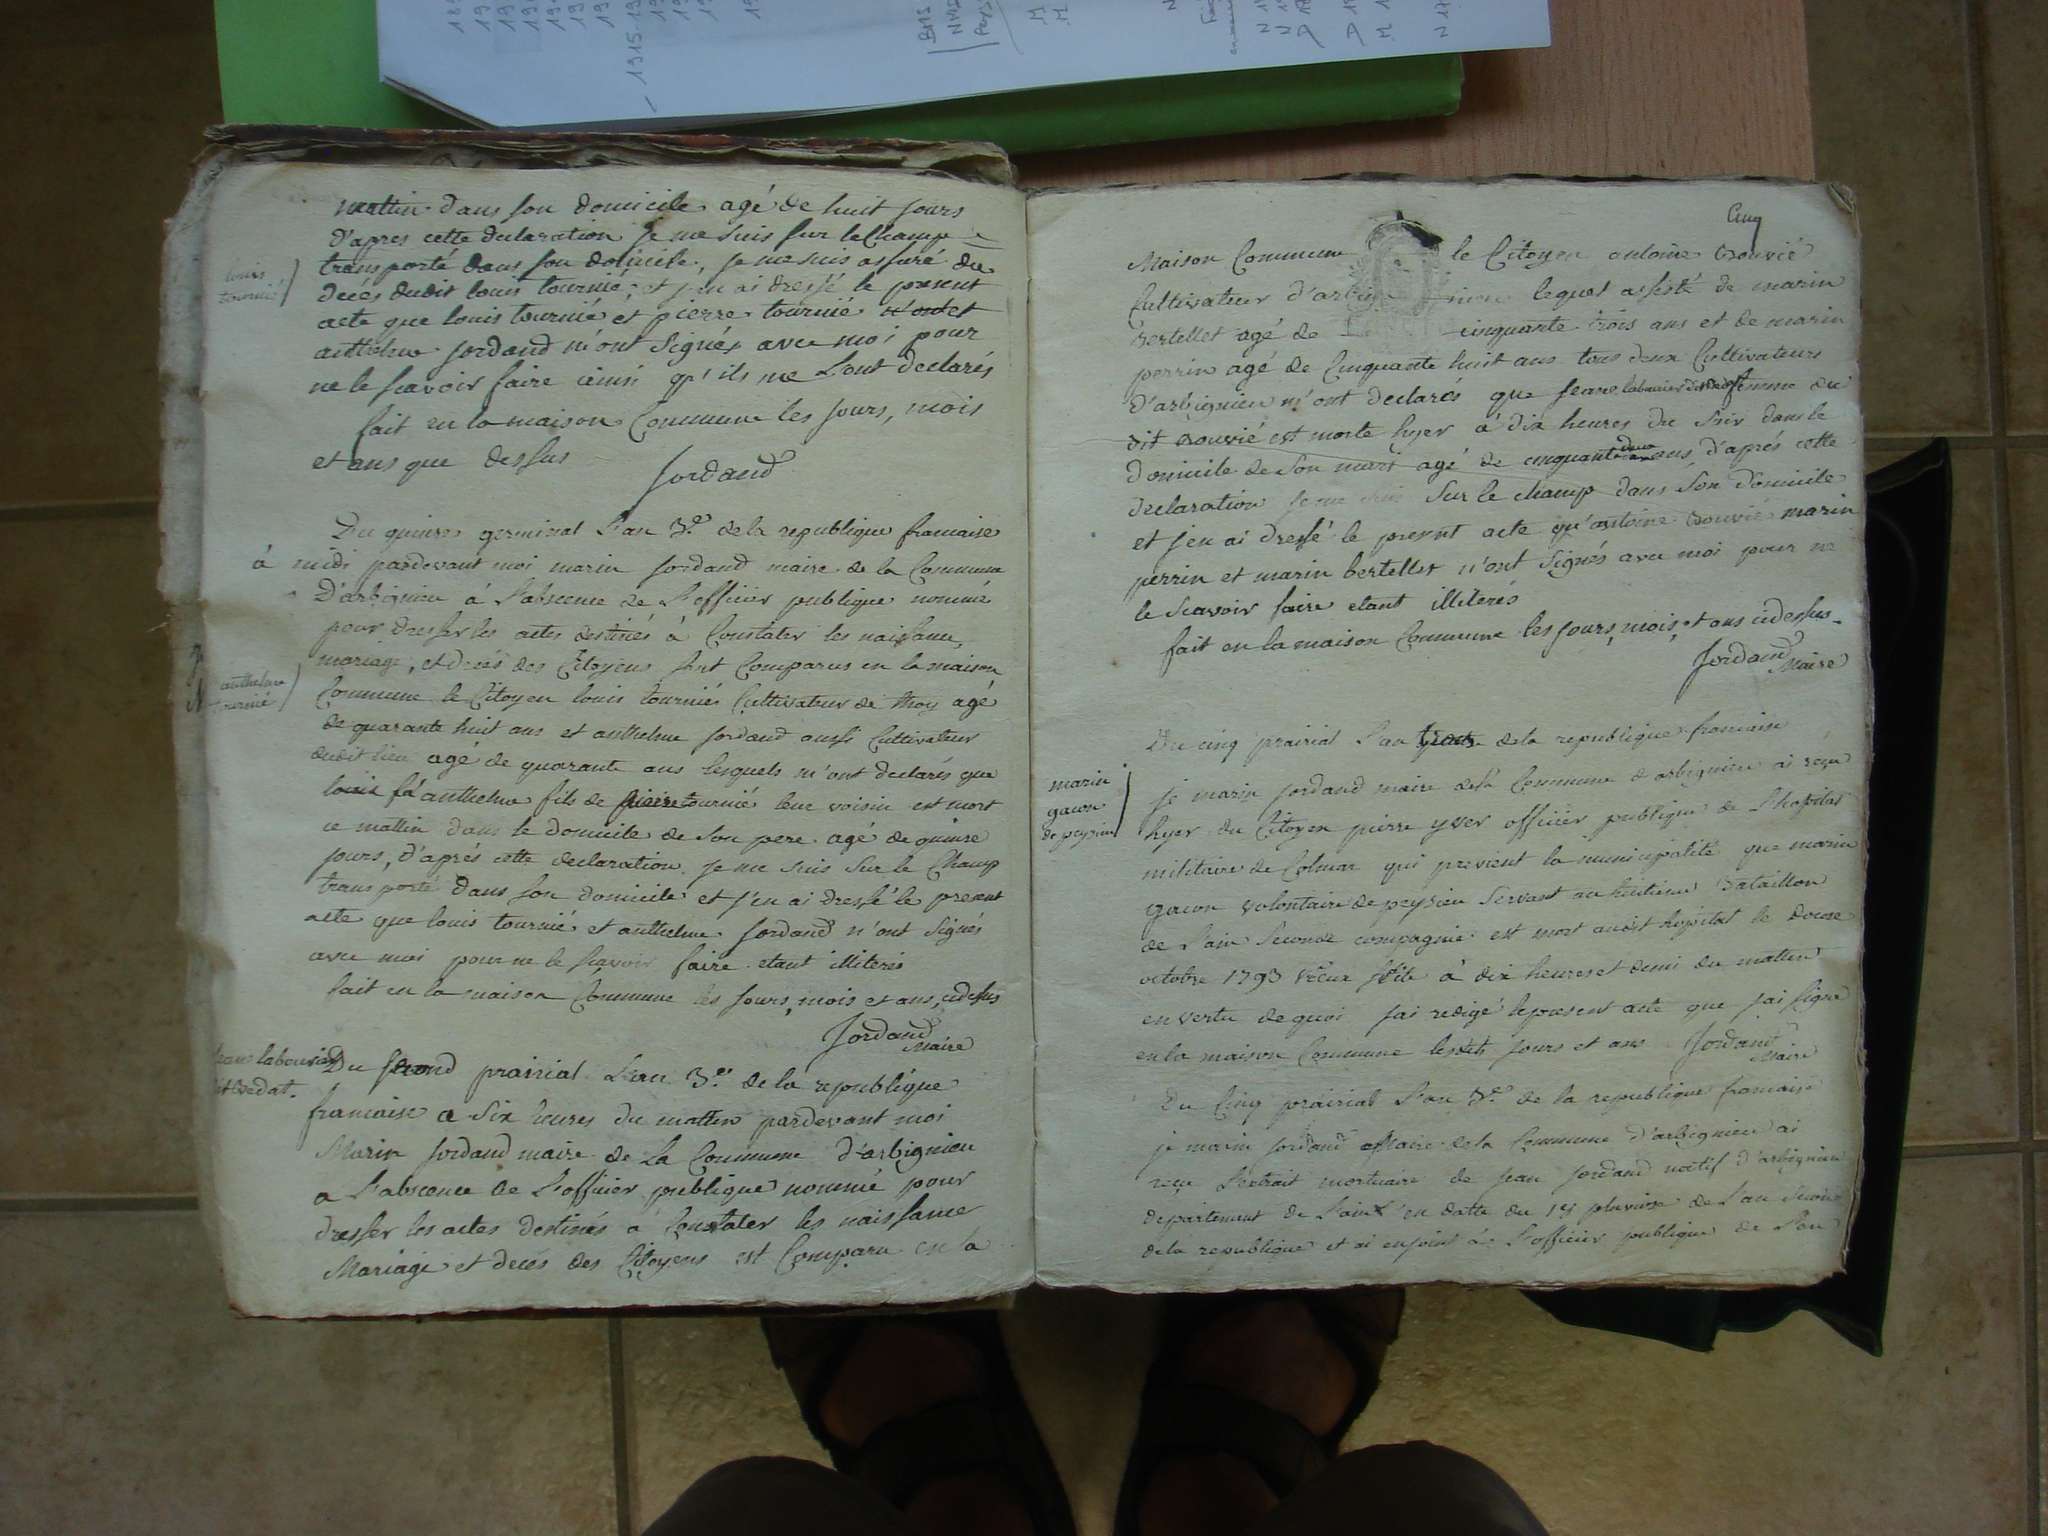 mattin dans son domicile agé de huit jours
d'apres cette declaration je me suis sur le Champ
transporté dans son domicile, je me suis assuré du
decés dudit louis tournié; et j'en ai dressé le present
acte que louis tournié et pierre tournié et
anthelme Jordand n'ont signés avec moi pour
ne le scavoir faire ainsi qu'ils me L'ont declarés
fait en la maison Commune les jours, mois
et ans que dessus
Jordand
louis
tournié
Du quinze germinal l'an 3.e de la republique francaise
à midi pardevant moi marin Jordand maire de la Commune
D'arbignieu à l'absence de l'officier publique nommé
pour dresser les actes destinés à Constater les naissance,
mariage, et decés des Citoyens sont Comparus en la maison
Commune le Citoyen louis tournié Cultivateur de thoy agé
de quarante huit ans et anthelme Jordand aussi Cultivateur
dudit lieu agé de quarante ans lesquels m'ont declarés que
anthelme fils de pierre tournié leur voisin est mort
ce mattin dans le domicile de son pere agé de quinze
jours, d'aprés cette declaration je me suis sur le Champ
transporté dans son domicile et j'en ai dressé le present
acte que louis tournié et anthelme Jordand n'ont signés
avec moi pour ne le scavoir faire etant illiterés
fait en la maison Commune les jours, mois et ans, cidessus
Jordand
Maire
anthelme
tournié
Jeane labouvier
Du second prairial L'an 3.e de la republique
francaise a six heures du mattin pardevant moi
Marin Jordand maire de La Commune d'arbignieu
a l'absence de l'officier publique nommé pour
dresser les actes destinés a Constater les naissance
Mariage et decés des Citoyens est Comparu en la
Cinq
Maison Commune le Citoyen antoine bouvié
Cultivateur lequel assisté de marin
bertellet agé de cinquante trois ans et de marin
perrin agé de Cinquante huit ans tous deux Cultivateurs
d'arbignieu m'ont declarés que Jeane femme du
dit bouvié est morte hyer à dix heures du soir dans le
domicile de son mari agé de cinquante deux ans, d'aprés cette
declaration je me suis sur le champ dans son domicile
et j'en ai dressé le present acte qu'antoine bouvié marin
perrin et marin bertellet n'ont signés avec moi pour ne
le scavoir faire etant illiterés
fait en la maison Commune les jours, mois, et ans cidessus
Jordand
Maire
Du cinq prairial l'an de la republique francaise
je marin Jordand maire de la Commune d'arbignieu ai reçu
hyer du Citoyen pierre yver officier publique de l'hopital
militaire de Colmar qui previent la municipalité que marin
gacon volontaire de peysieu servant au huitieme Bataillon
de l'ain seconde compagnie est mort audit hopital le douze
octobre 1793 vieux stile à dix heures et demi du mattin
en vertu de quoi j'ai redigé le present acte que j'ai signé
en la maison Commune lesdits jours et ans Jordand
Maire
marin
gacon
de peysieu
Du Cinq prairial l'an 3.e de la republique francaise
je marin Jordand maire de la Commune d'arbignieu ai
reçu l'extrait mortuaire de jean Jordand natif d'arbignieu
departement de l'ain en datte du pluviose de l'an second
de la republique et ai enjoint à l'officier publique de l'en